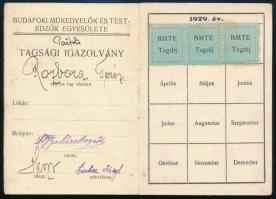 BUDAFOKI MŰKEDVELŐK ÉS TEST-
EDZŐK EGYESÜLETE
Pártoló
TAGSÁGI IGAZOLVÁNY
részére.
Lakás:
Belépett:
elnök.
titkár.
pénztáros.
1929. év.
BMTE
Tagdíj
BMTE
Tagdíj
BMTE
Tagdíj
Április
Május
Junius
Julius
Augusztus
Szeptember
Október
November
December